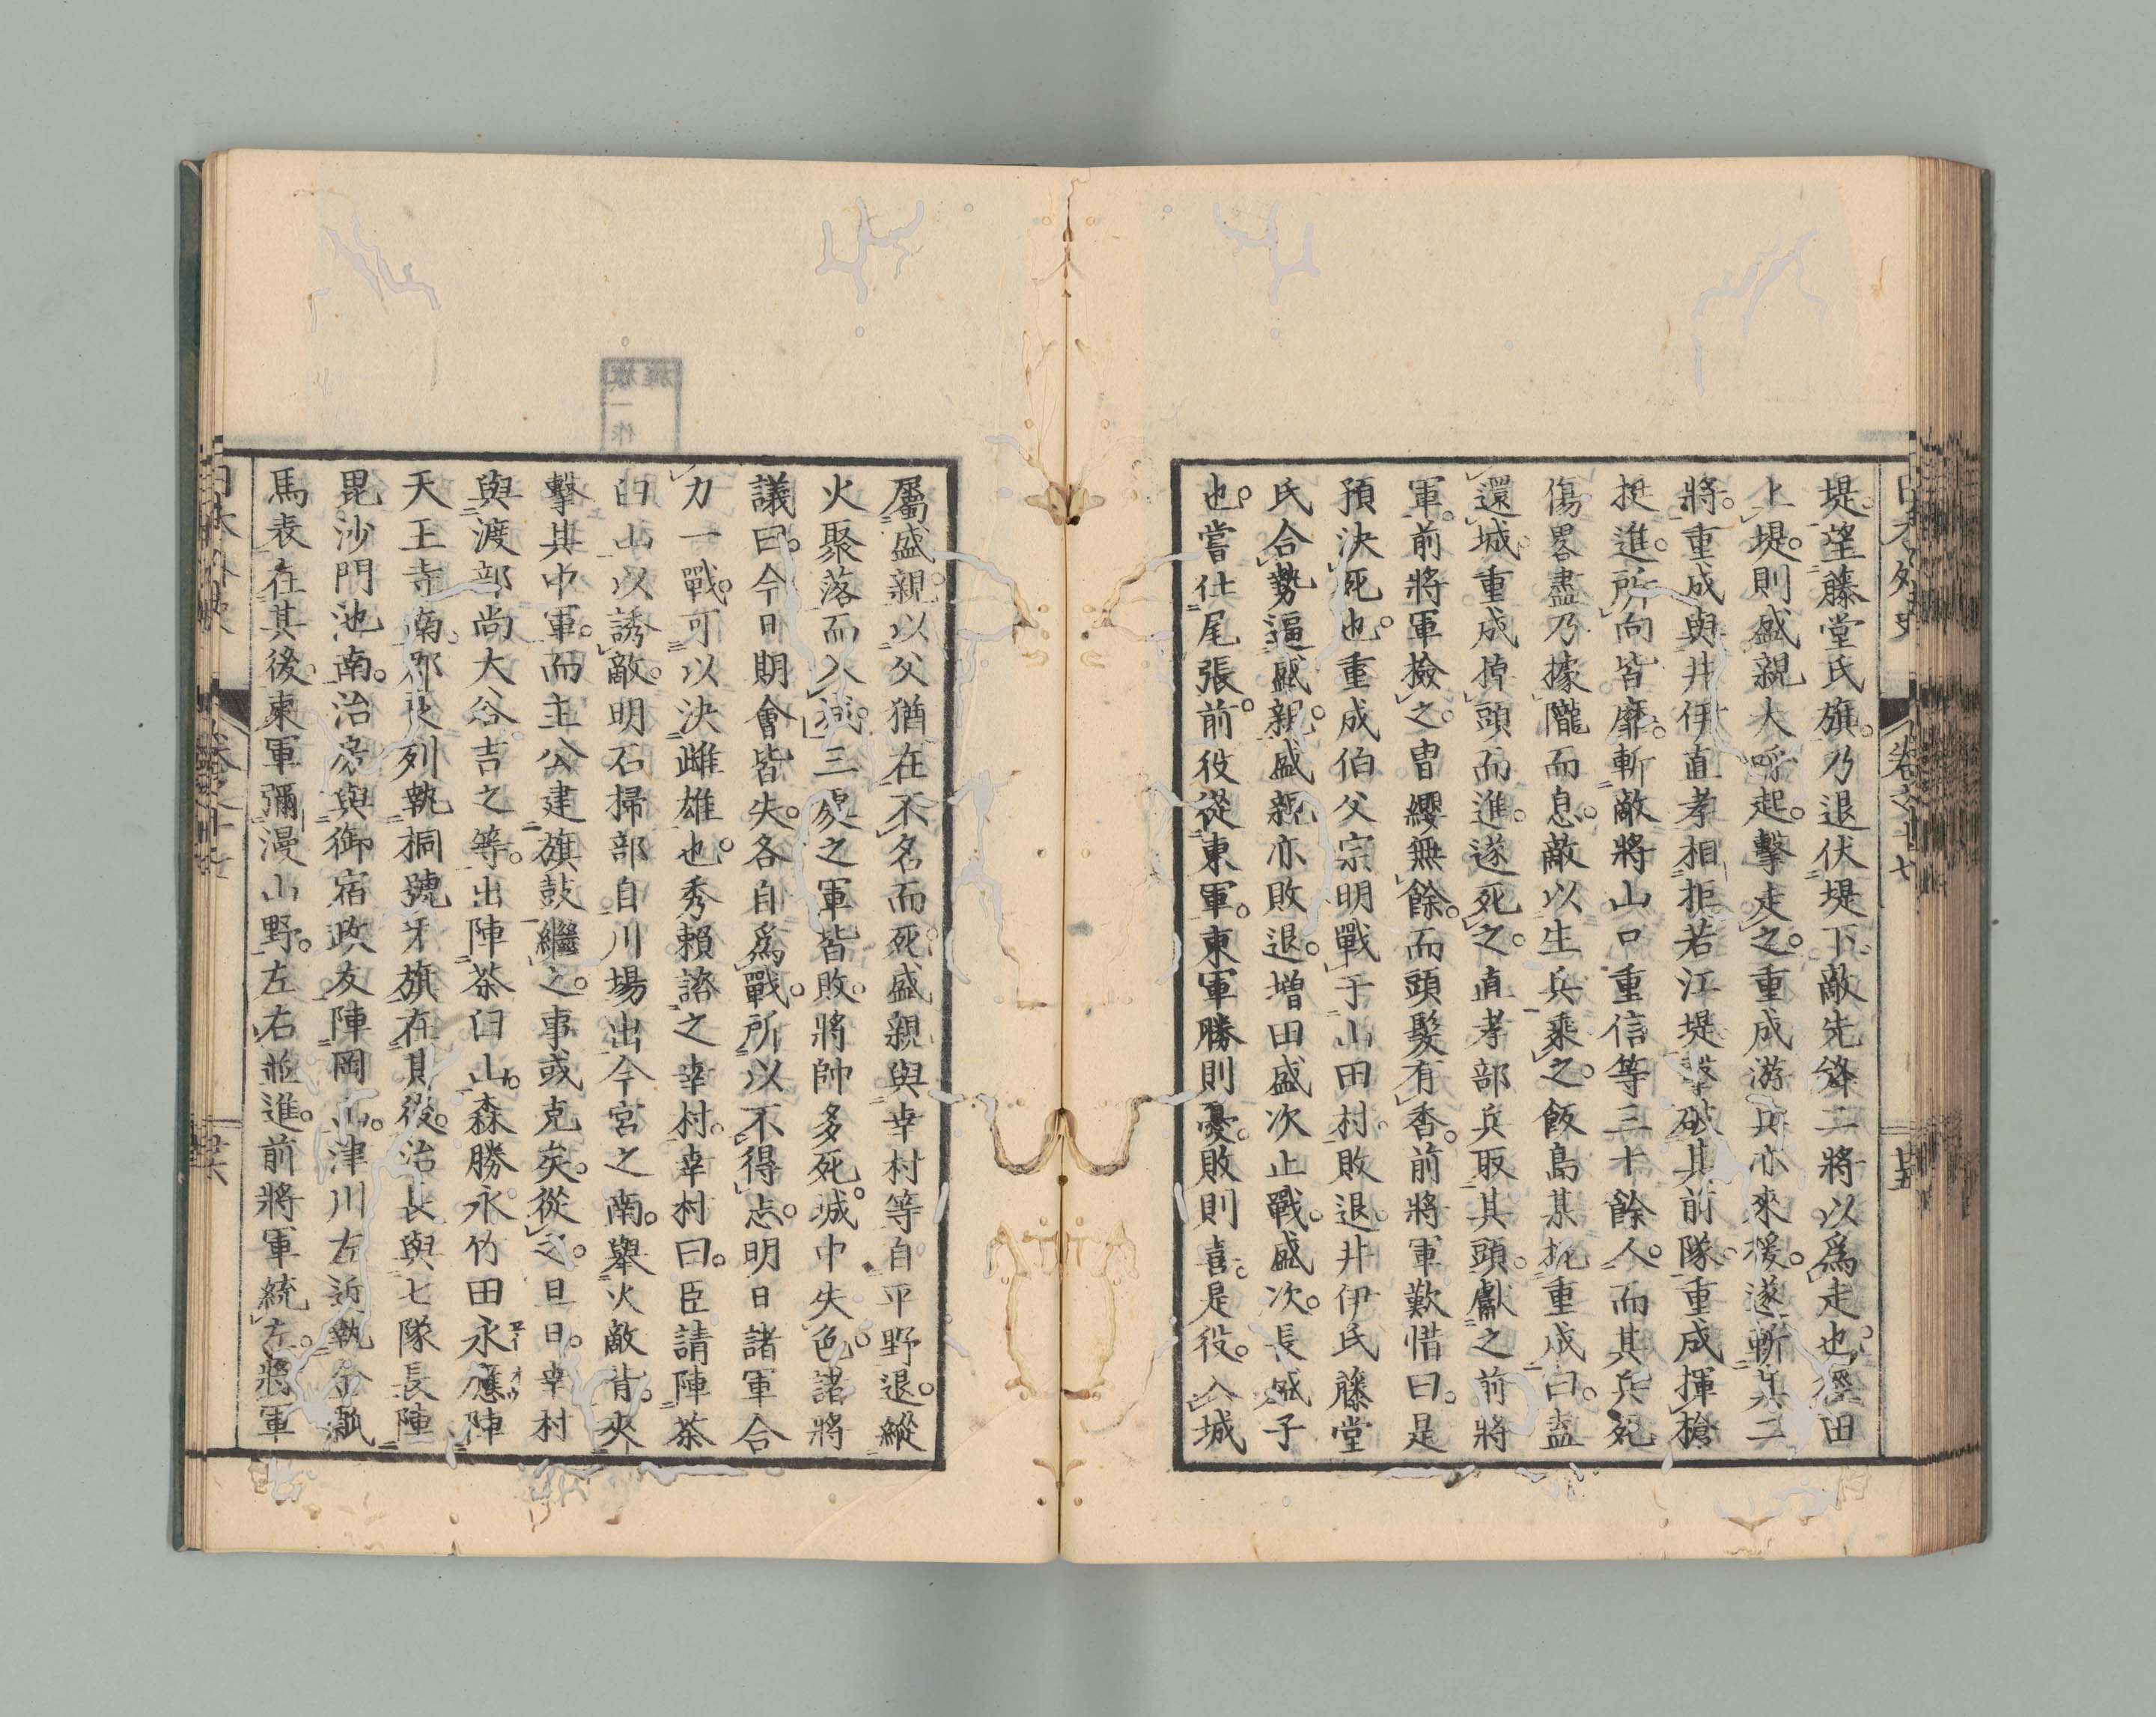 堤。望藤堂氏旗。乃退伏堤下。敵先鋒二將以爲走也。徑田
上堤。則盛親大呼起。擊走之。重成游兵亦來援。遂斬其二
將。重成與井伊直孝相拒若江堤。擊破其前隊。重成揮槍
挺進。所向皆靡。斬敵將山口重信等三十餘人。而其兵死
傷畧盡。乃據隴而息。敵以生兵乘之。飯島某扼重成曰。盍
還城。重成掉頭而進。遂死之。直孝部兵取其頭。獻之前將
軍。前將軍檢之。冑纓無餘。而頭髮有香。前將軍歎惜曰。是
預決死也。重成伯父宗明戰于山田村。敗退。井伊氏藤堂
氏合勢逼盛親。盛親亦敗退。增田盛次止戰。盛次。長盛子
也。嘗仕尾張。前役從東軍。東軍勝則憂。敗則喜。是役。入城
屬盛親。以父猶在不名而死。盛親與幸村等自平野退。縱
火聚落而入城。三處之軍皆敗。將帥多死。城中失色。諸將
議曰。今日期會皆失。各自爲戰。所以不得志。明日諸軍合
力一戰。可以決雌雄也。秀賴諮之幸村。幸村曰。臣請陣茶
臼山以誘敵。明石掃部自川場出今宮之南。舉火敵背。夾
擊其中軍。而主公建旗鼓繼之。事或克矣。從之。旦日。幸村
與渡部尚大谷吉之等。出陣茶臼山。森勝永竹田永應陣
天王寺南。郡良列執桐號牙旗在其後。治長與七隊長陣
毘沙門池南。治房與御宿政友陣岡山。津川左近執金瓢
馬表在其後。東軍彌漫山野。左右並進。前將軍統左。將軍
日本外史
卷之十七
廿五